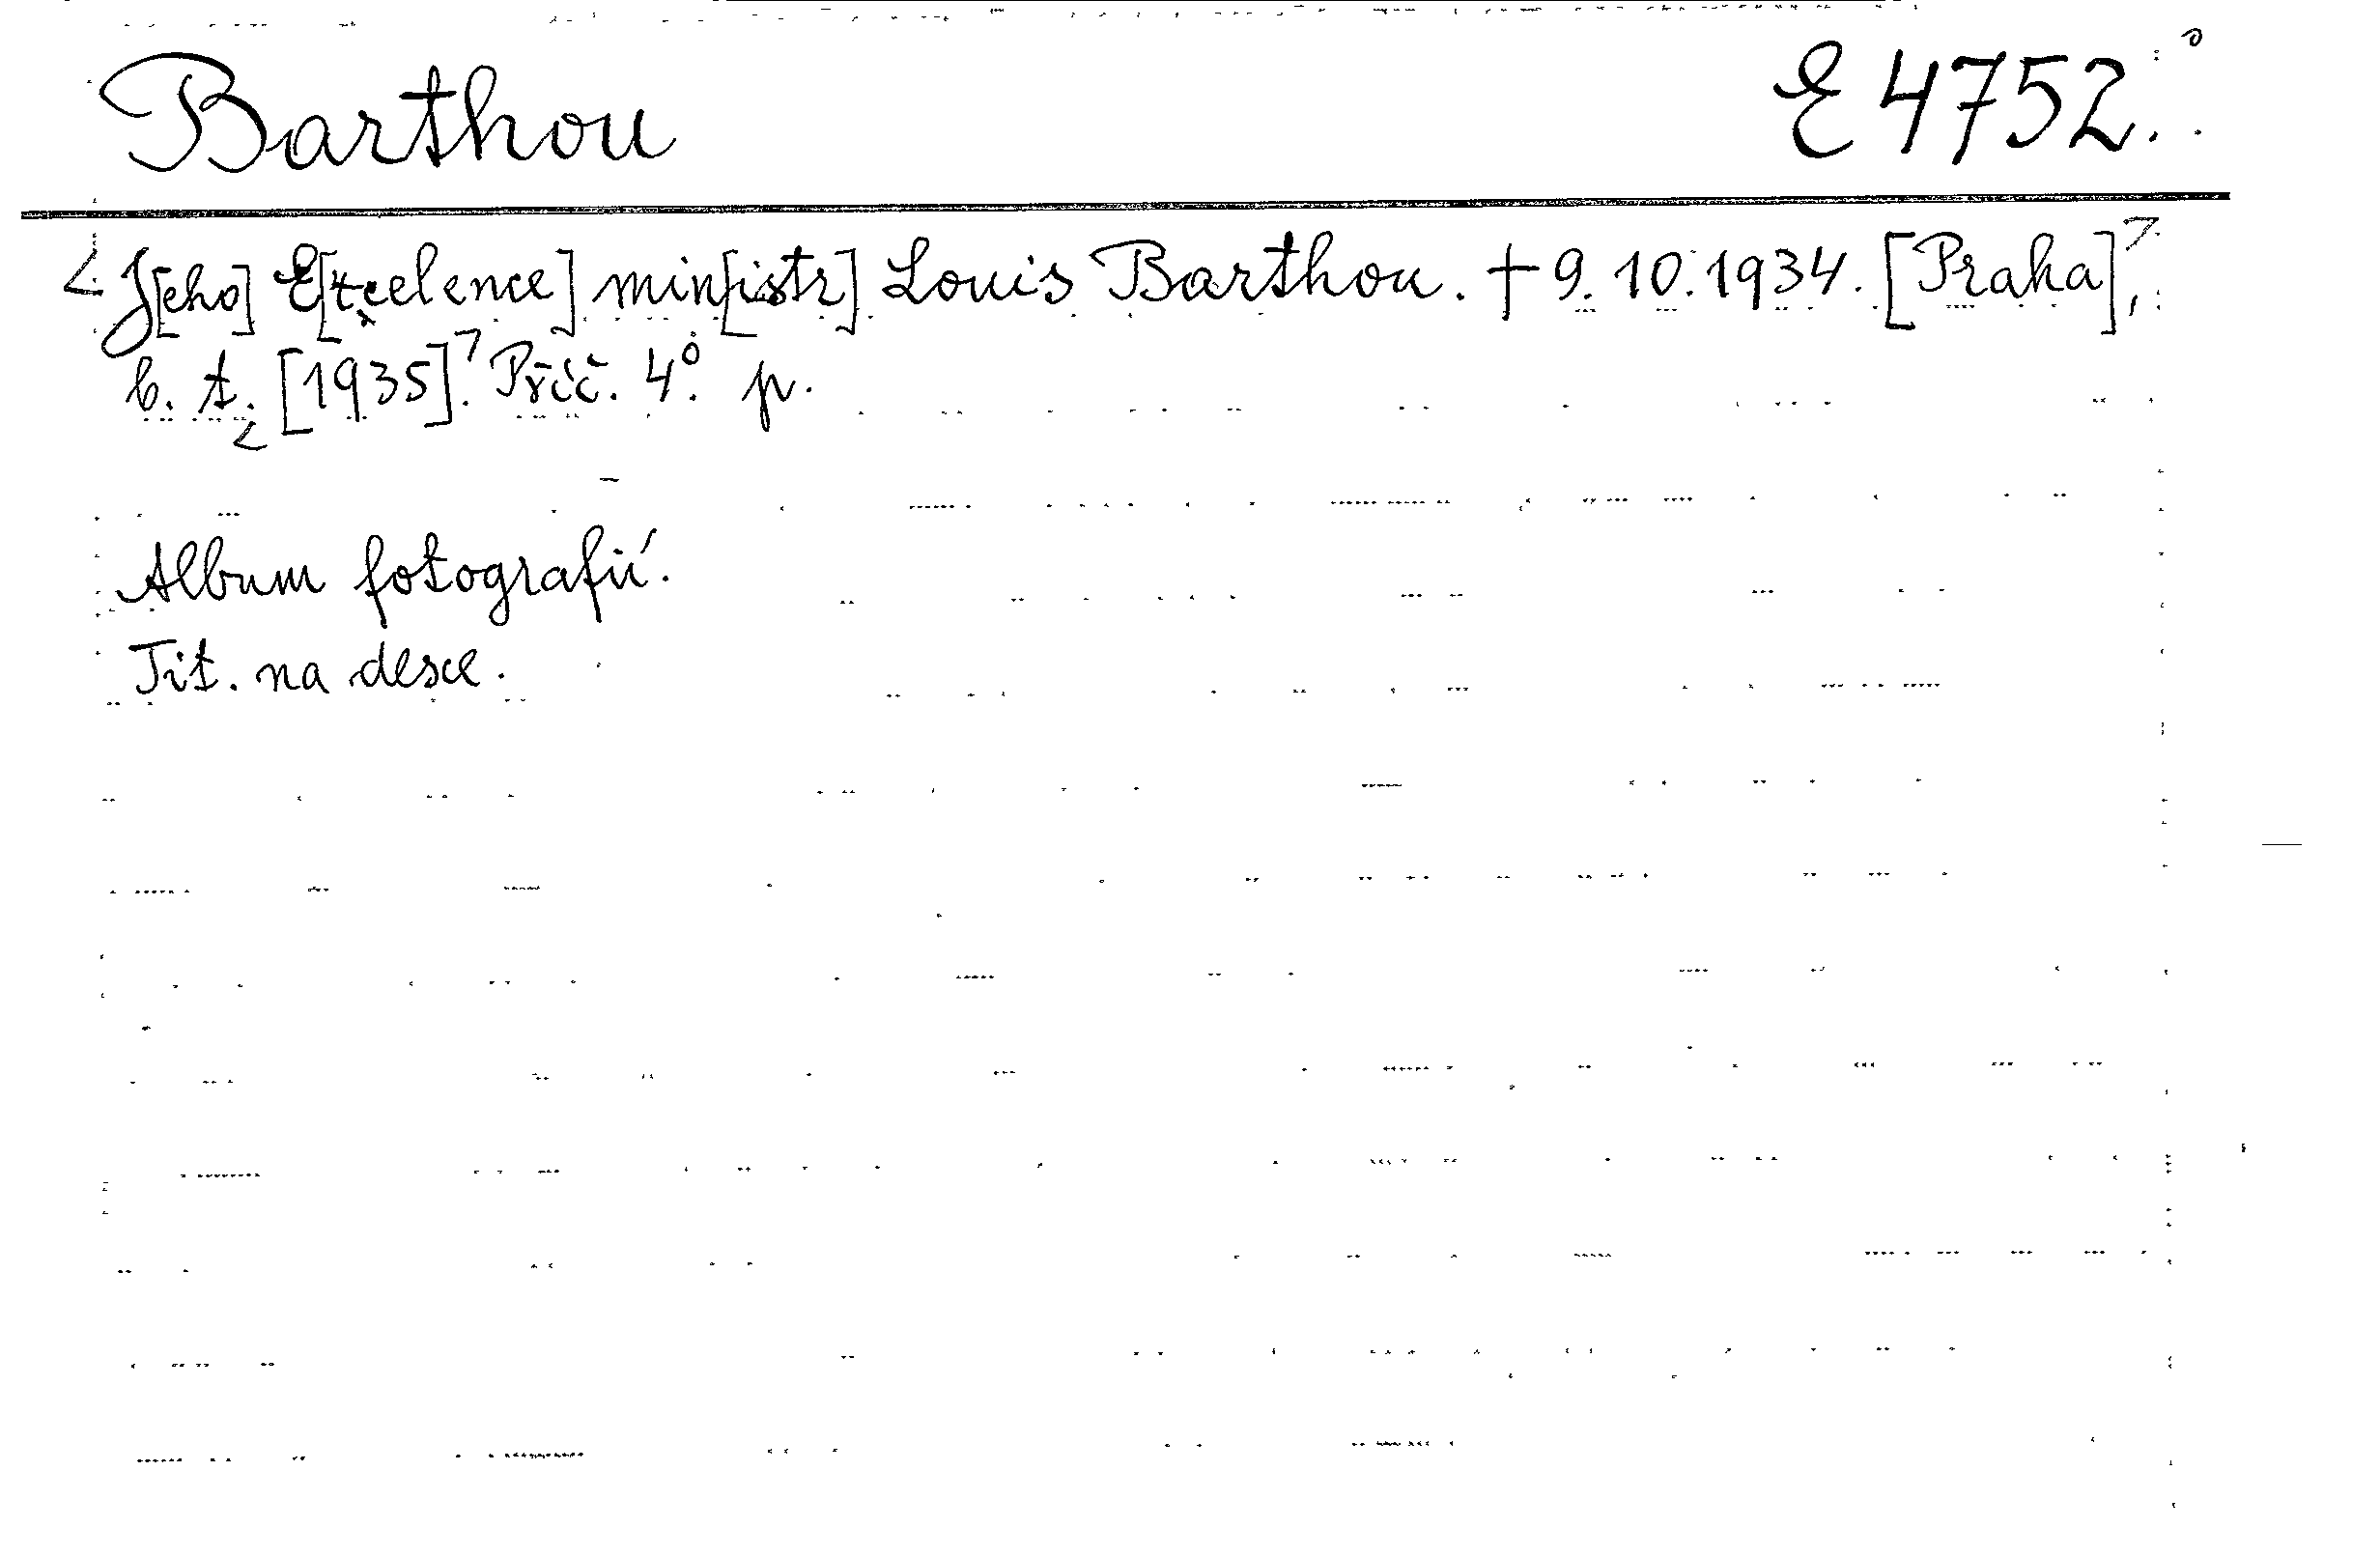 Barthou E 4752.
J[eho] E[xcelence] min[istr] Louis Barthou. † 9. 10. 1934. [Praha],
b. t. [1935]. Příč. 4°. p.
Album fotografií.
Tit. na desce.